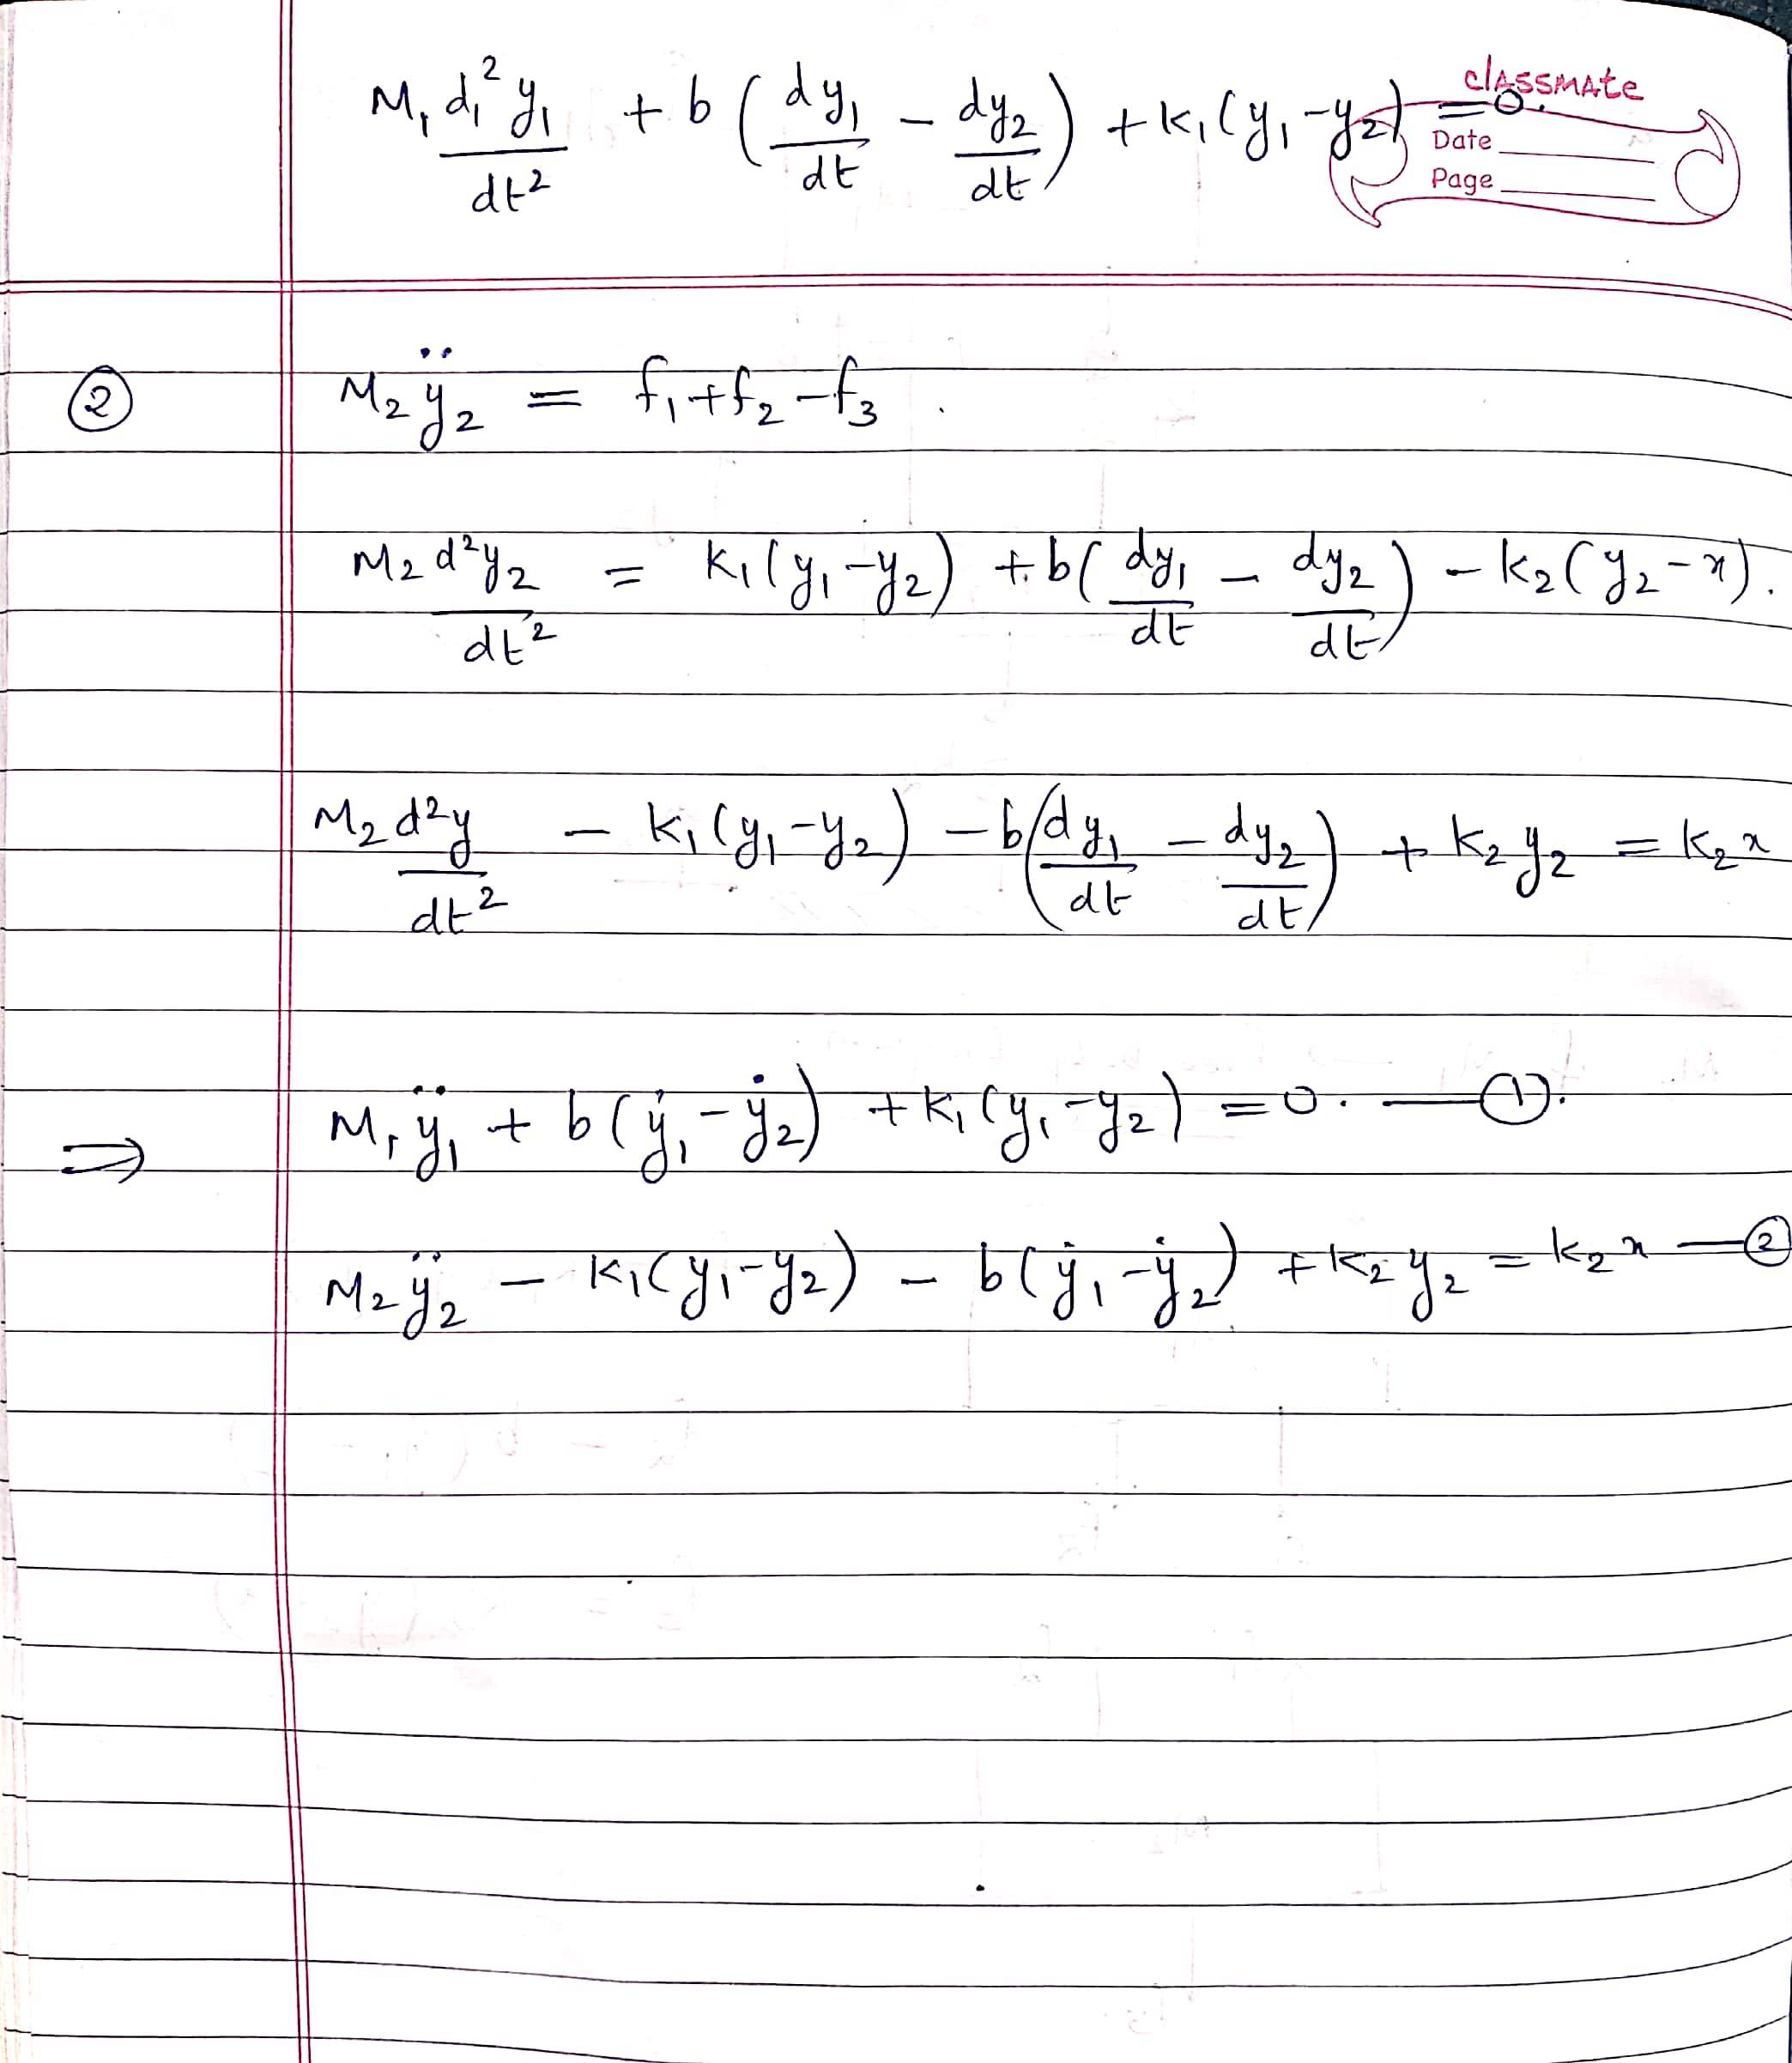 classmate
Date
Page
M₁ d₁²y₁/dt² + b (dy₁/dt - dy₂/dt) + k₁(y₁-y₂) = 0.
② M₂ÿ₂ = f₁+f₂-f₃.
M₂ d²y₂/dt² = k₁(y₁-y₂) + b(dy₁/dt - dy₂/dt) - k₂(y₂-x).
M₂ d²y/dt² - k₁(y₁-y₂) - b(dy₁/dt - dy₂/dt) + k₂y₂ = k₂x
⇒ M₁ÿ₁ + b(ẏ₁-ẏ₂) + k₁(y₁-y₂) = 0. — ①.
M₂ÿ₂ - k₁(y₁-y₂) - b(ẏ₁-ẏ₂) + k₂y₂ = k₂x — ②